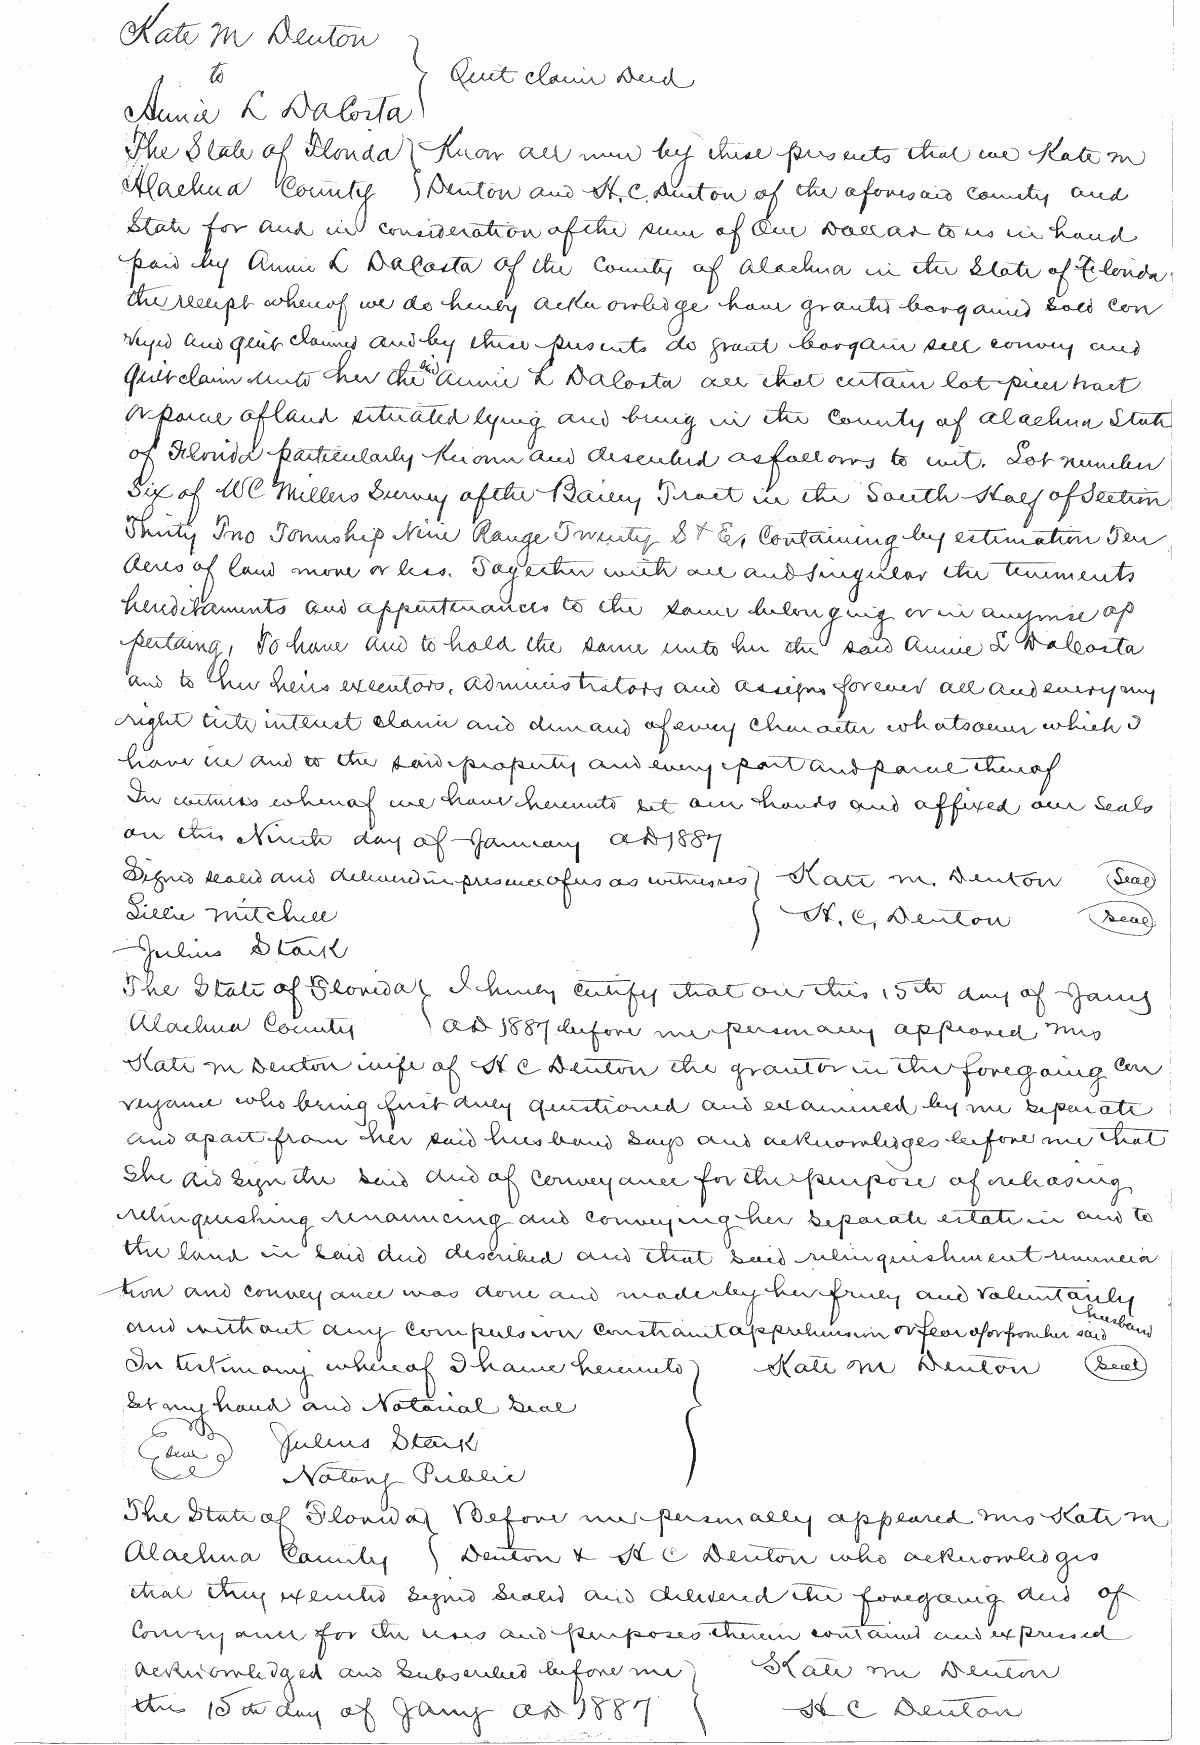 Kate M Denton
to
Quit claim Deed
Annie L DaCosta
The State of Florida Know all men by these presents that we Kate M
Alachua County Denton and H. C. Denton of the aforesaid county and
State for and in consideration of the sum of One Dollar to us in hand
paid by Annie L DaCosta of the County of Alachua in the State of Florida
the receipt whereof we do hereby acknowledge have granted bargained sold con
veyed and quit claimed and by these presents do grant bargain sell convey and
Quit claim unto her the said Annie L DaCosta all that certain lot piece tract
or parcel of land situated lying and being in the County of Alachua State
of Florida particularly known and described as follows to wit. Lot number
Six of W C Millers Survey of the Bailey Tract in the South Half of Section
Thirty Two Township Nine Range Twenty S & E, Containing by estimation Ten
Acres of land more or less. Together with all and singular the tenements
hereditaments and appertenances to the same belonging or in anywise ap
pertaing, To have and to hold the same unto her the said Annie L DaCosta
and to her heirs executors, administrators and assigns forever all and every my
right title interest claim and demand of every character whatsoever which I
have in and to the said property and every part and parcel thereof
In witness whereof we have hereunto set our hands and affixed our seals
on this Ninth day of January AD 1887
Signed sealed and delivered in presence of us as witnesses Kate M. Denton Seal
Lillie Mitchell H. C, Denton Seal
Julius Stark
The State of Florida I hereby certify that on this 15th day of Jany
Alachua County AD 1887 before me personally appeared Mrs
Kate M Denton wife of H C Denton the grantor in the foregoing con
veyance who being first duly questioned and examined by me separate
and apart from her said husband says and acknowledges before me that
she did sign the said deed of conveyance for the purpose of releasing
relinquishing renouncing and conveying her separate estate in and to
the land in said deed described and that said relinquishment renuncia
tion and conveyance was done and made by her freely and voluntarily
and without any compulsion constraint apprehension or fear of or from her said husband
In testimony whereof I have hereunto Kate M Denton Seal
set my hand and Notarial Seal
Seal Julius Stark
Notary Public
The State of Florida Before me personally appeared Mrs Kate M
Alachua County Denton & H C Denton who acknowledges
that they executed signed sealed and delivered the foregoing deed of
Conveyance for the uses and purposes therein contained and expressed
acknowledged and subscribed before me Kate M Denton
this 15th day of Jany AD 1887 H C Denton